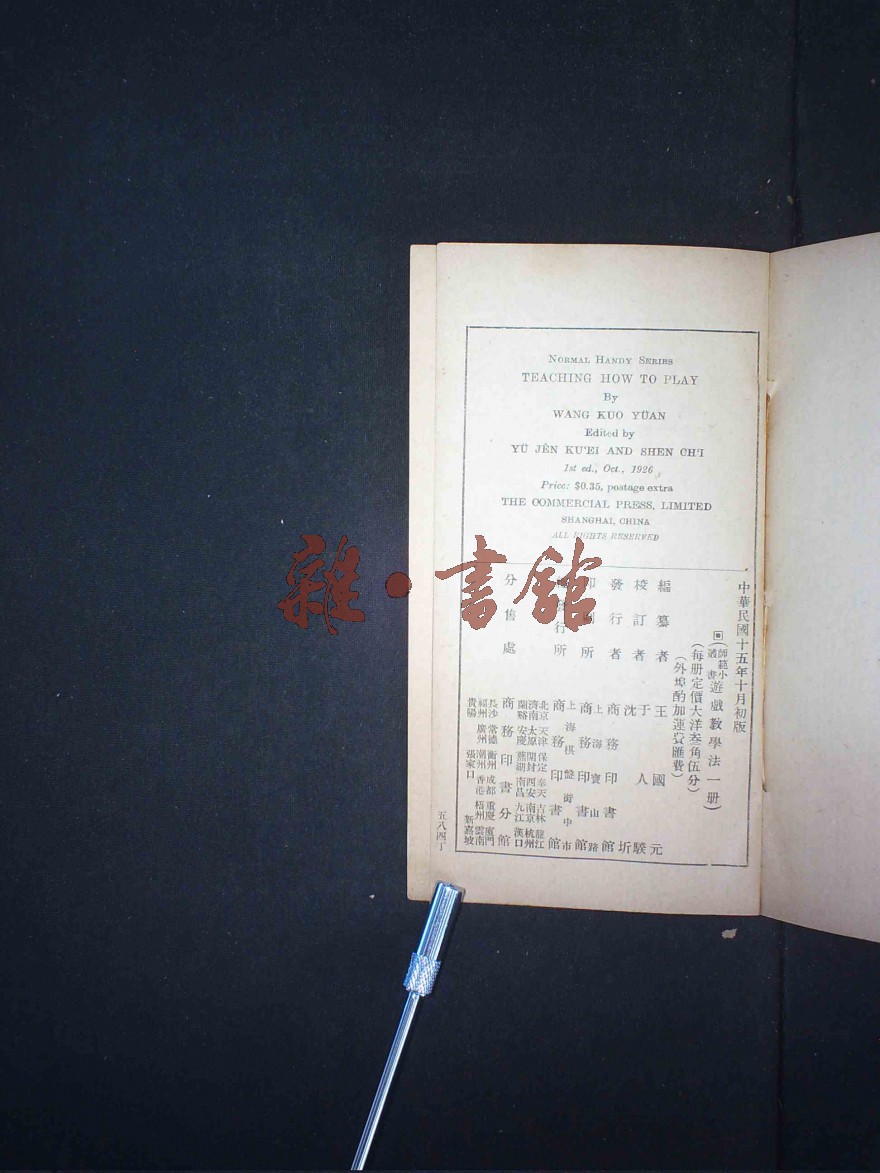 NORMAL HANDY SERIES
TEACHING HOW TO PLAY
By
WANG KUO YÜAN
Edited by
YÜ JÊN KU'EI AND SHEN CH'I
1st ed., Oct., 1926
Price: $0.35, postage extra
THE COMMERCIAL PRESS, LIMITED
SHANGHAI, CHINA
ALL RIGHTS RESERVED
中華民國十五年十月初版
(師範小叢書遊戲教學法一册)
(每册定價大洋叁角伍分)
(外埠酌加運費匯費)
編纂者 王國元
校訂者 于人騤
沈圻
發行者 商務印書館
印刷所 上海寶山路
商務印書館
發行所 上海棋盤街中市
商務印書館
分售處 商務印書分館
北京 天津 保定 奉天 吉林 龍江
濟南 太原 開封 西安 南京 杭州
蘭谿 安慶 蕪湖 南昌 九江 漢口
長沙 常德 衡州 成都 重慶 廈門
福州 廣州 潮州 香港 梧州 雲南
貴陽 張家口 新嘉坡
五八四丁
雜·書館